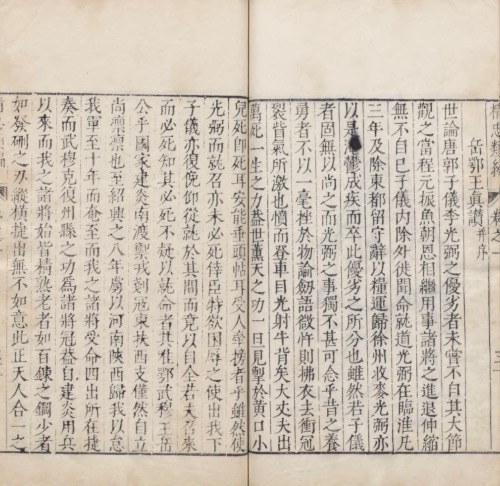 岳鄂王真讚并序
世論唐郭子儀李光弼之優劣者未嘗不自其大節
觀之當程元振魚朝恩相繼用事諸將之進退伸縮
無不自已子儀内除外徙聞命就道光弼在臨淮凡
三年及除東都留守辭以糧運歸徐州收麥光弼亦
以是鬱成疾而卒此優劣之所分也雖然若子儀
者固無以尚之而光弼之事獨不甚可念乎昔之養
勇者不以一毫挫於物論劒語微忤則拂衣去衝冠
裂眥氣所激也憤而登車目光射牛背矣大丈夫出
萬死一生之力蓋世薰天之功一旦見掣於黄口小
兒死即死耳安能垂頭帖耳受人牽搒者乎雖然使
光弼而就召亦未必死倖臣特欲困辱之使出我下
子儀亦復俛仰從就於其間而竟以自全若夫召來
而必死知其必死不疑以就命者其惟鄂武穆王岳
公乎國家建炎南渡禦戎剗寇東扶西支僅然自立
尚凜凜也至紹興之八年虜以河南陝西歸我以怠
我軍至十年而渝命至而我之諸將受命四出所在捷
奏而武穆克復州縣之功爲諸將冠蓋自建炎用兵
以來而我之諸將始皆精熟老者如百鍊之鋼少者
如發硎之刃縱橫捷出無不如意此正天人合一之